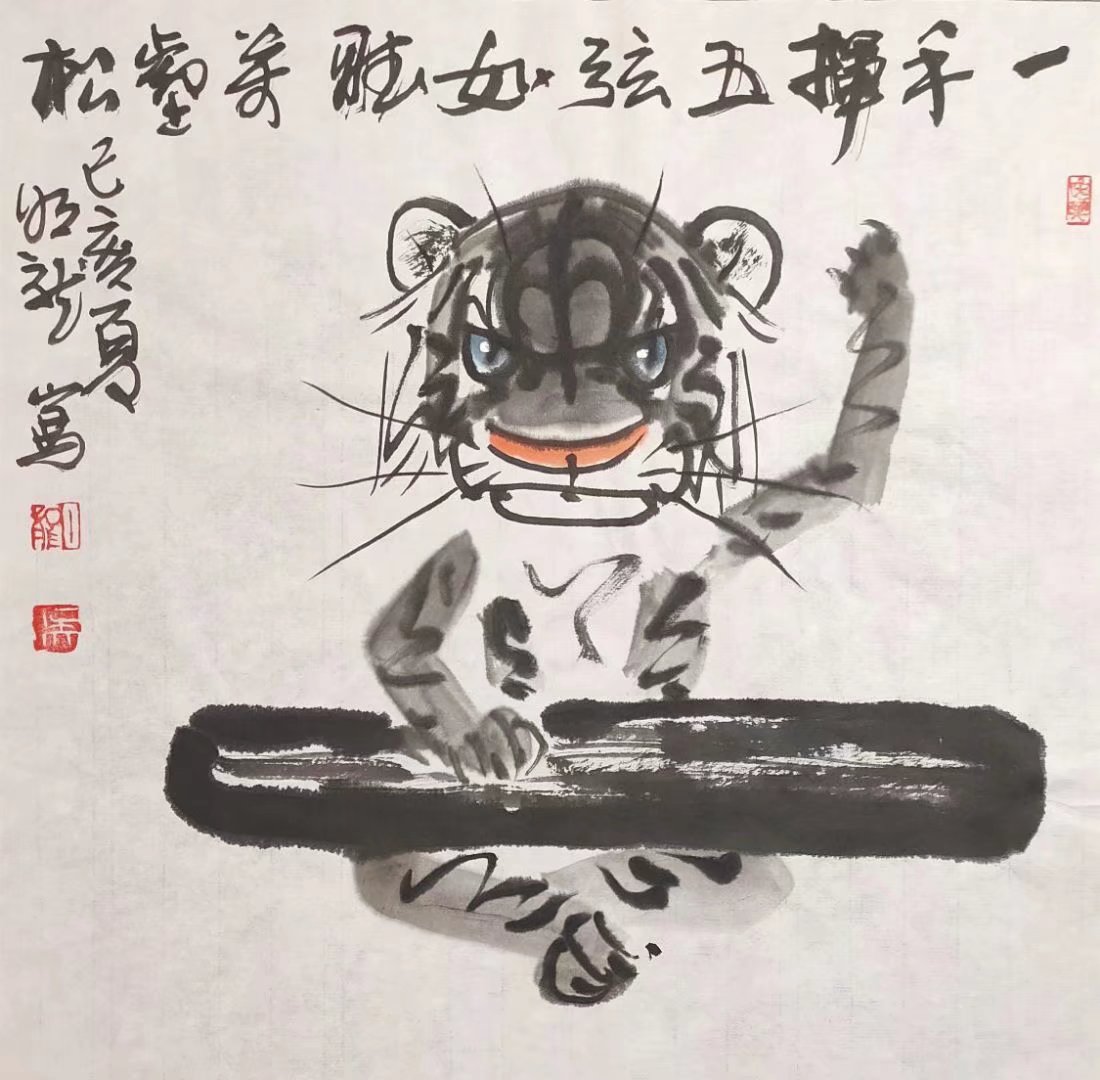 一手揮五弦如聽萬壑松
己亥夏
龍寫